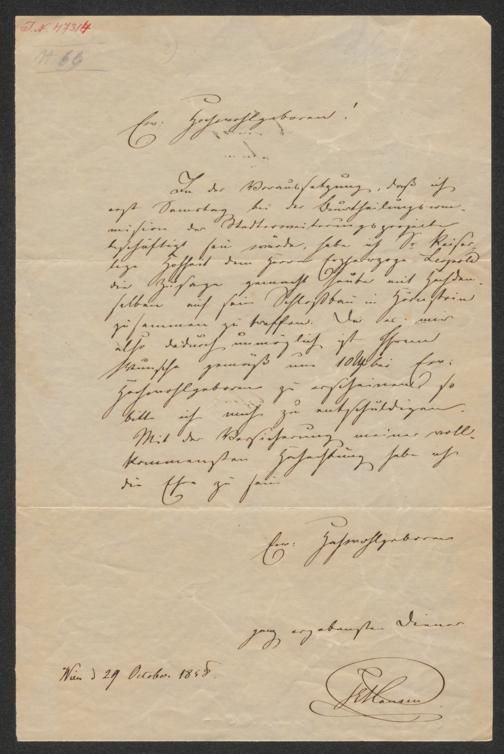 I.N. 47314
N 66
Ew: Hochwohlgeboren!
In der Voraussetzung, daß ich
erst Samstag bei der Beurtheilungscom-
mission der Stadterweiterungsprojekte
beschäftigt sein würde, habe ich Sr Kaiser-
liche Hoheit dem Herrn Erzherzoge Leopold
die Zusage gemacht heute mit Hochdem-
selben auf sein Schloßbau in Hörnstein
zusammen zu treffen. Da es mir
also dadurch unmöglich ist Ihrem
Wunsche gemäß um 10 Uhr bei Ew:
Hochwohlgeboren zu erscheinen so
bitte ich mich zu entschuldigen.
Mit der Versicherung meiner voll-
kommensten Hochachtung habe ich
die Ehre zu sein
Ew: Hochwohlgeboren
ganz ergebenster Diener
Wien d 29 October 1858.
Hansen